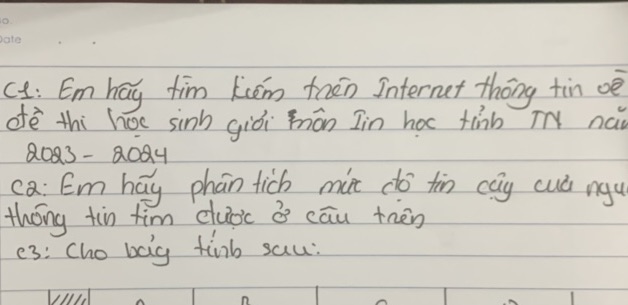 Date
C1: Em hãy tìm kiếm trên Internet thông tin về
đề thi học sinh giỏi môn Tin học tỉnh TN
2023 - 2024
C2: Em hãy phân tích mức độ tin cậy của
thông tin tìm được ở câu trên
C3: Cho bảy tính sau: